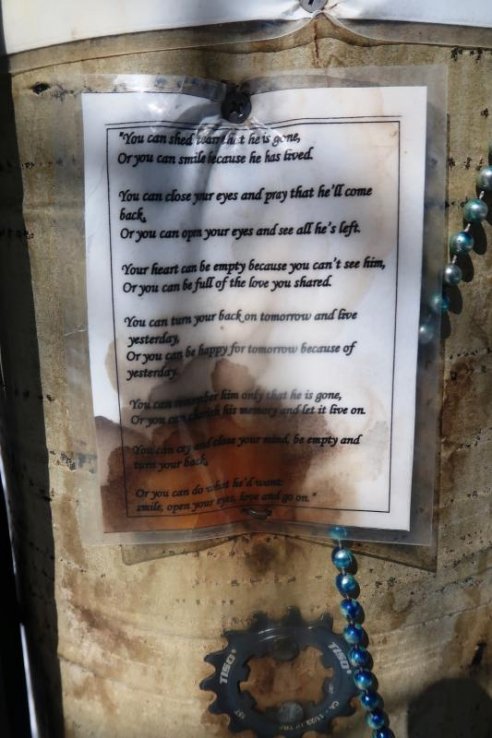 "You can shed tears that he is gone,
Or you can smile because he has lived.
You can close your eyes and pray that he'll come
back,
Or you can open your eyes and see all he's left.
Your heart can be empty because you can't see him,
Or you can be full of the love you shared.
You can turn your back on tomorrow and live
yesterday,
Or you can be happy for tomorrow because of
yesterday.
You can remember him only that he is gone,
Or you can cherish his memory and let it live on.
You can cry and close your mind, be empty and
turn your back,
Or you can do what he'd want:
smile, open your eyes, love and go on."
TISO
TISO